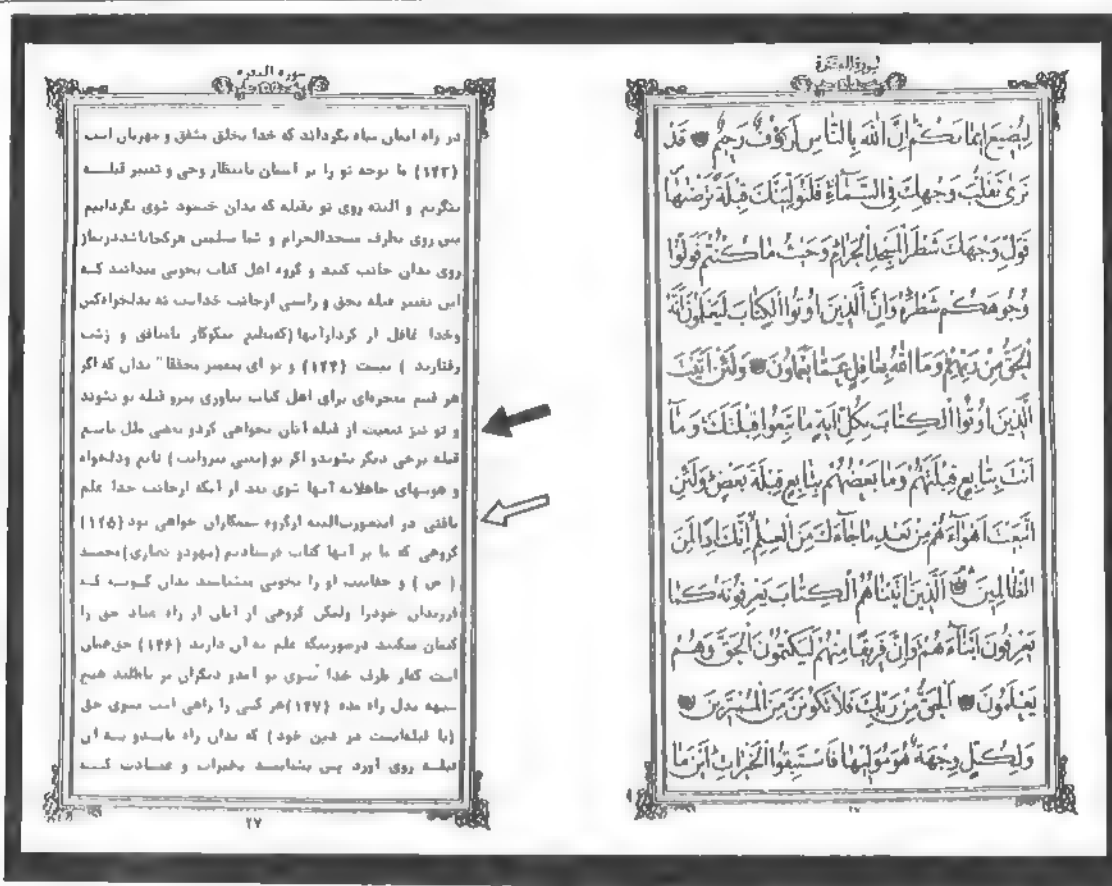 سورة البقرة
لِيُضِيعَ إِيمَانَكُمْ إِنَّ اللهَ بِالنَّاسِ لَرَؤُفٌ رَحِيمٌ قَدْ
نَرَىٰ تَقَلُّبَ وَجْهِكَ فِي السَّمَاءِ فَلَنُوَلِّيَنَّكَ قِبْلَةً تَرْضٰيهَا
فَوَلِّ وَجْهَكَ شَطْرَ الْمَسْجِدِ الْحَرَامِ وَحَيْثُ مَا كُنْتُمْ فَوَلُّوا
وُجُوهَكُمْ شَطْرَهُ وَإِنَّ الَّذِينَ اُوتُوا الْكِتَابَ لَيَعْلَمُونَ أَنَّهُ
الْحَقُّ مِنْ رَبِّهِمْ وَمَا اللهُ بِغَافِلٍ عَمَّا يَعْمَلُونَ وَلَئِنْ أَتَيْتَ
الَّذِينَ اُوتُوا الْكِتَابَ بِكُلِّ آيَةٍ مَا تَبِعُوا قِبْلَتَكَ وَمَا
أَنْتَ بِتَابِعٍ قِبْلَتَهُمْ وَمَا بَعْضُهُمْ بِتَابِعٍ قِبْلَةَ بَعْضٍ وَلَئِنِ
اتَّبَعْتَ أَهْوَاءَهُمْ مِنْ بَعْدِ مَا جَاءَكَ مِنَ الْعِلْمِ إِنَّكَ إِذًا لَمِنَ
الظَّالِمِينَ الَّذِينَ آتَيْنَاهُمُ الْكِتَابَ يَعْرِفُونَهُ كَمَا
يَعْرِفُونَ أَبْنَاءَهُمْ وَإِنَّ فَرِيقًا مِنْهُمْ لَيَكْتُمُونَ الْحَقَّ وَهُمْ
يَعْلَمُونَ الْحَقُّ مِنْ رَبِّكَ فَلَا تَكُونَنَّ مِنَ الْمُمْتَرِينَ
وَلِكُلٍّ وِجْهَةٌ هُوَ مُوَلِّيهَا فَاسْتَبِقُوا الْخَيْرَاتِ أَيْنَ مَا
۲۷
سوره البقره
در راه ایمان تباه نگرداند که خدا بخلق مشفق و مهربان است
(۱۴۳) ما توجه تو را بر آسمان بانتظار وحی و تغییر قبلــه
بنگریم و البته روی تو بقبله که بدان خشنود شوی بگردانیم
پس روی بطرف مسجدالحرام و شما مسلمین هرکجاباشیددرنماز
روی بدان جانب کنید و گروه اهل کتاب بخوبی میدانند کـه
این تغییر قبله بحق و راستی ازجانب خداست نه بدلخواه‌کس
وخدا غافل از کردارآنها (که‌منع نیکوکار یامنافق و زشت
رفتارند ) نیست (۱۴۴) و تو ای پیغمبر محققا" بدان که اگر
هر قسم معجزه‌ای برای اهل کتاب بیاوری پیرو قبله تو نشوند
و تو نیز تبعیت از قبله آنان نخواهی کردو بعضی ملل تابع
قبله برخی دیگر نشوندو اگر تو (یعنی پیروانت ) تابع ودلخواه
و هوسهای جاهلانه آنها شوی بعد از آنکه ازجانب خدا علم
یافتی در اینصورت‌البته ازگروه ستمکاران خواهی بود (۱۴۵)
گروهی که ما بر آنها کتاب فرستادیم (یهودو نصاری)محمد
( ص ) و حقانیت او را بخوبی میشناسند بدان گـونـه کـه
فرزندان خودرا ولیکن گروهی از آنان از راه عناد حق را
کتمان میکنند درصورتیکه علم به آن دارند (۱۴۶) حق‌همان
است کناز طرف خدا بسوی تو آمدو دیگران بر باطلند هیچ
شبهه بدل راه مده (۱۴۷)هر کسی را راهی است بسوی حق
(یا قبله‌ایست در دین خود ) که بدان راه یابـدو بـه آن
قبلـه روی آورد پس بشتابید بخیرات و عبـادت کـه
۲۷